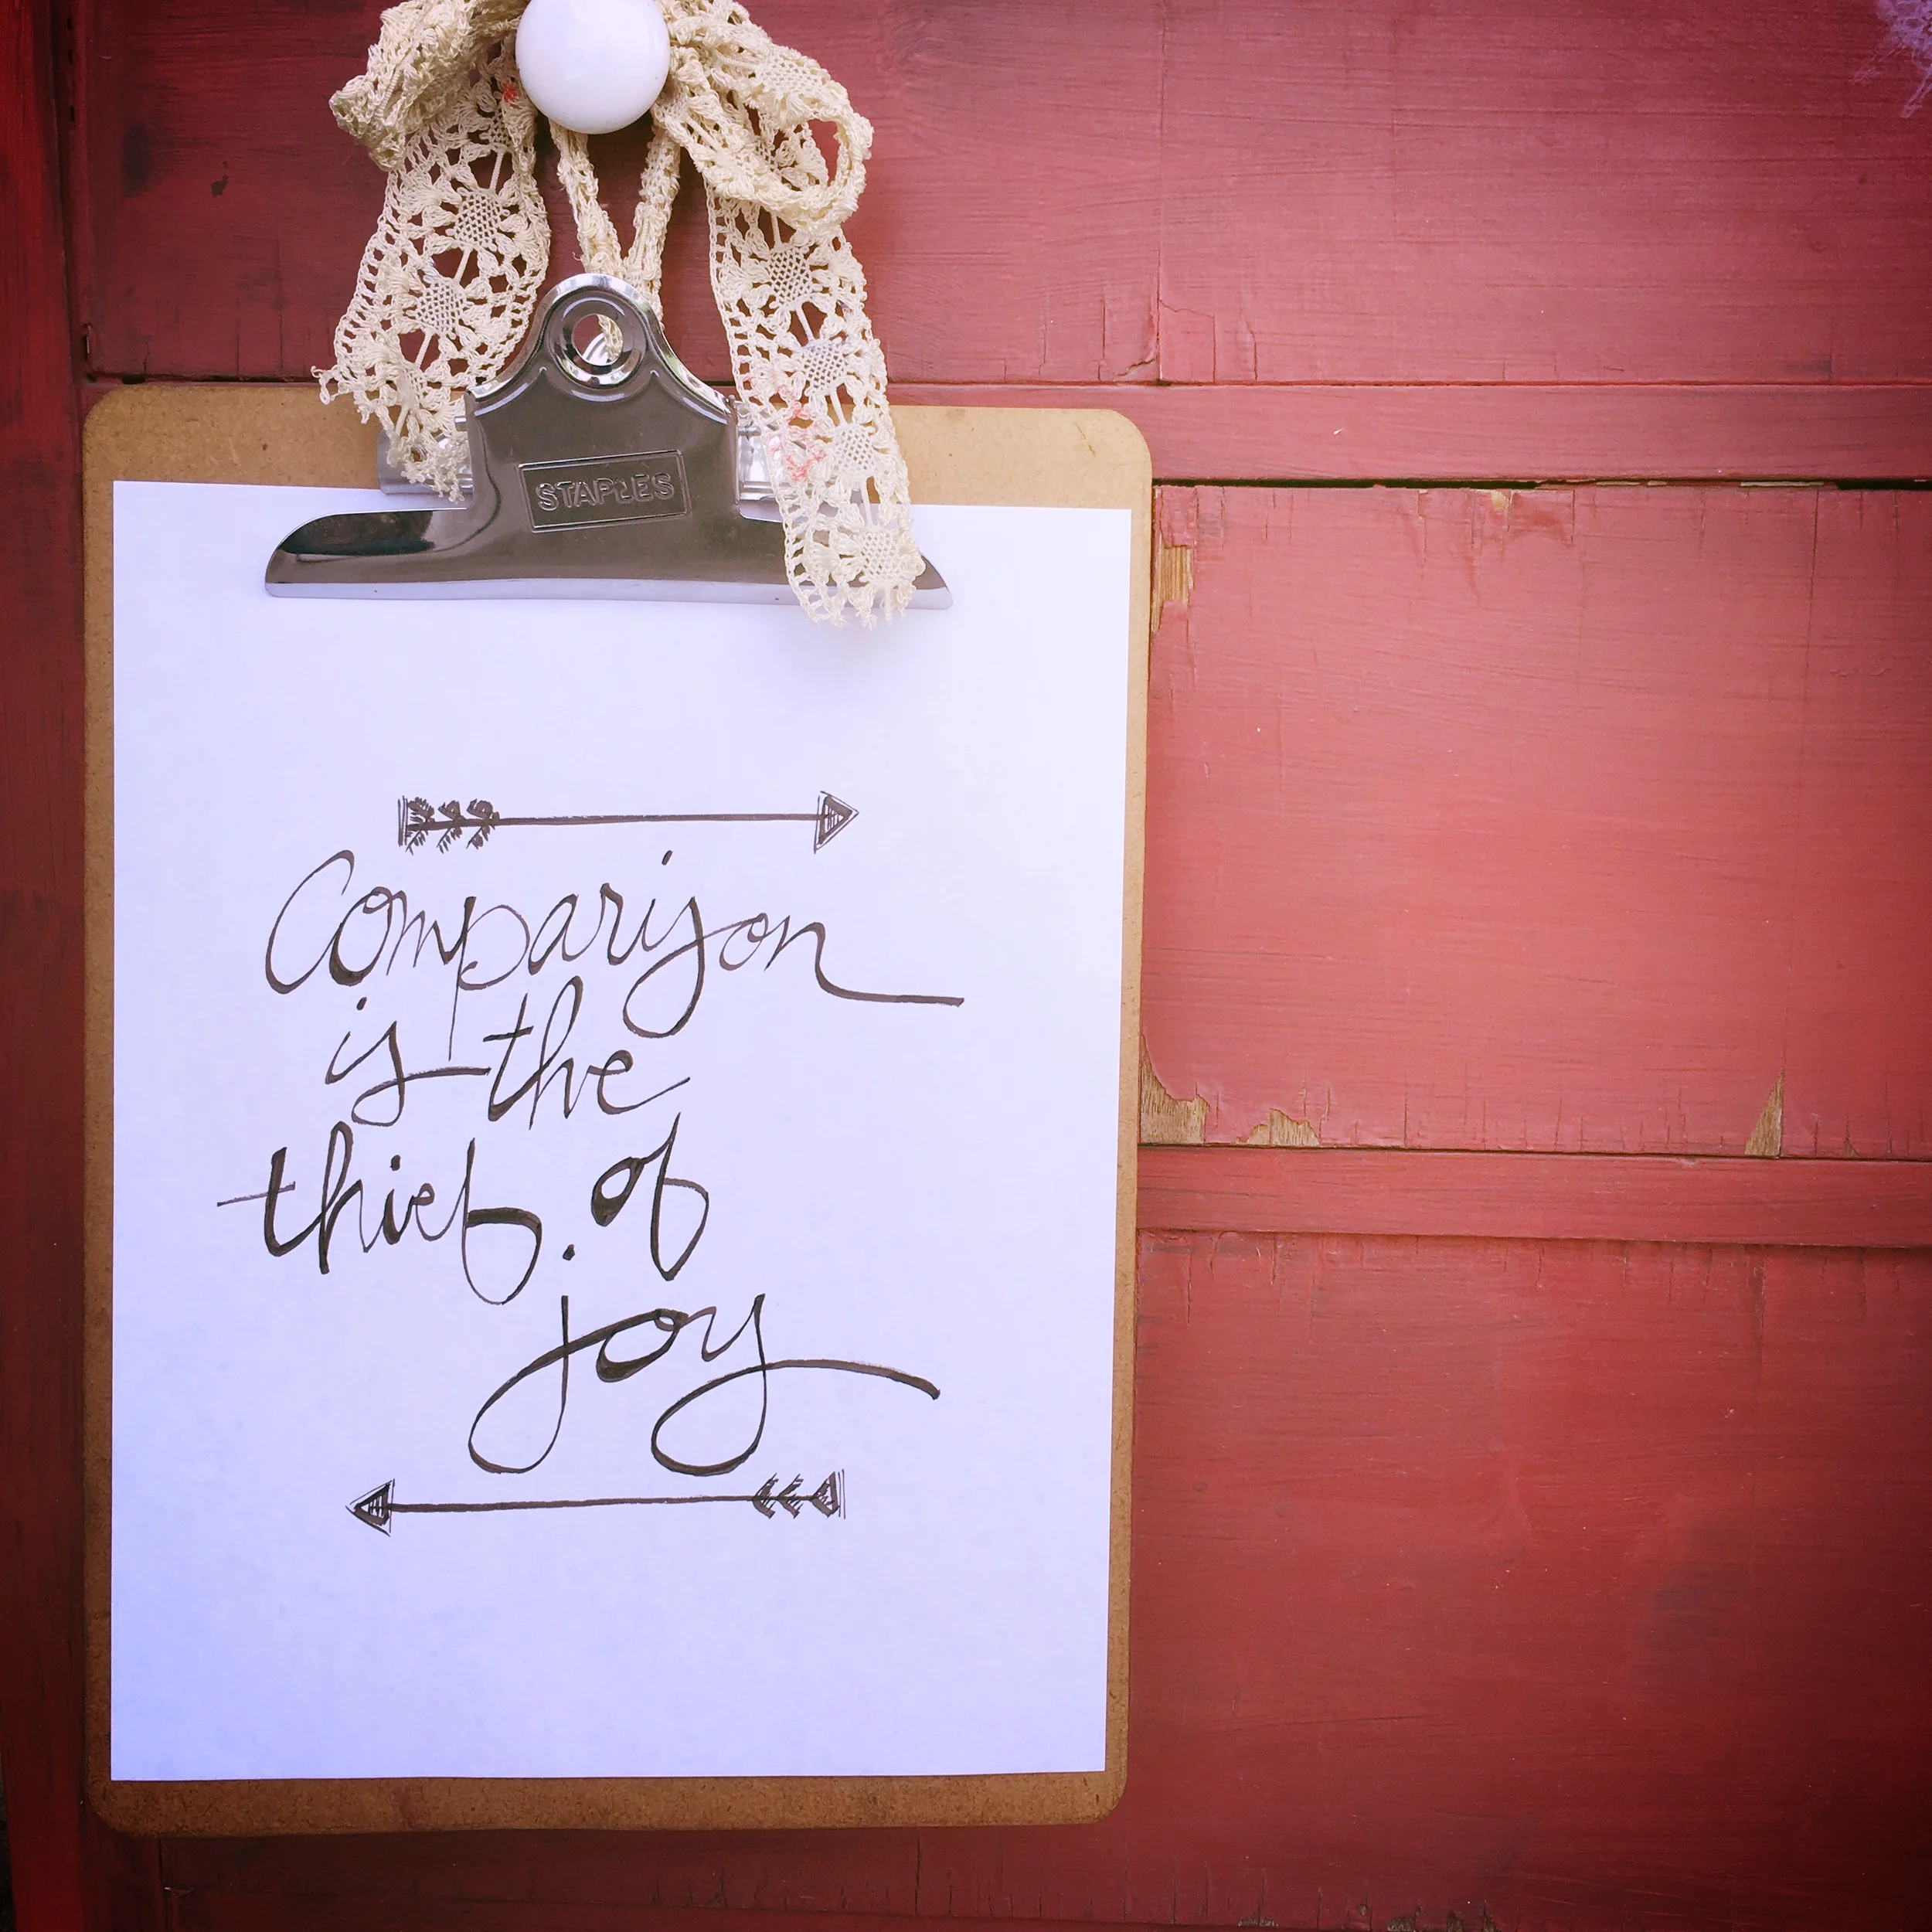 STAPLES
Comparison
is the
thief of
joy